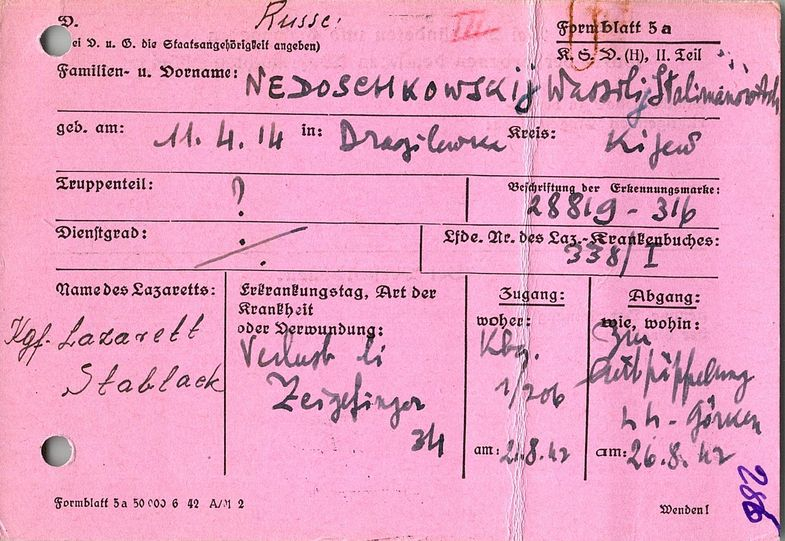 D. Russe. III Formblatt 5a
(bei D. u. G. die Staatsangehörigkeit angeben) K. S. D. (H), II. Teil
Familien- u. Vorname: NEDOSCHKOWSKIJ Wassilij Stalimanowitsch
geb. am: 11. 4. 14 in: Dragilewka Kreis: Kijew
Truppenteil: ? Beschriftung der Erkennungsmarke:
28819 - 316
Dienstgrad: Lfde. Nr. des Laz.-Krankenbuches:
338/I
Name des Lazaretts:
Kgf. Lazarett
Stablack
Erkrankungstag, Art der
Krankheit
oder Verwundung:
Verlust li
Zeigefinger
34
Zugang:
woher:
Kbg.
1/206
am: 2.8.42
Abgang:
wie, wohin:
zur
LH-Görken
am: 26.8.42
286
Formblatt 5a 50 000 6 42 A/M 2 Wenden!